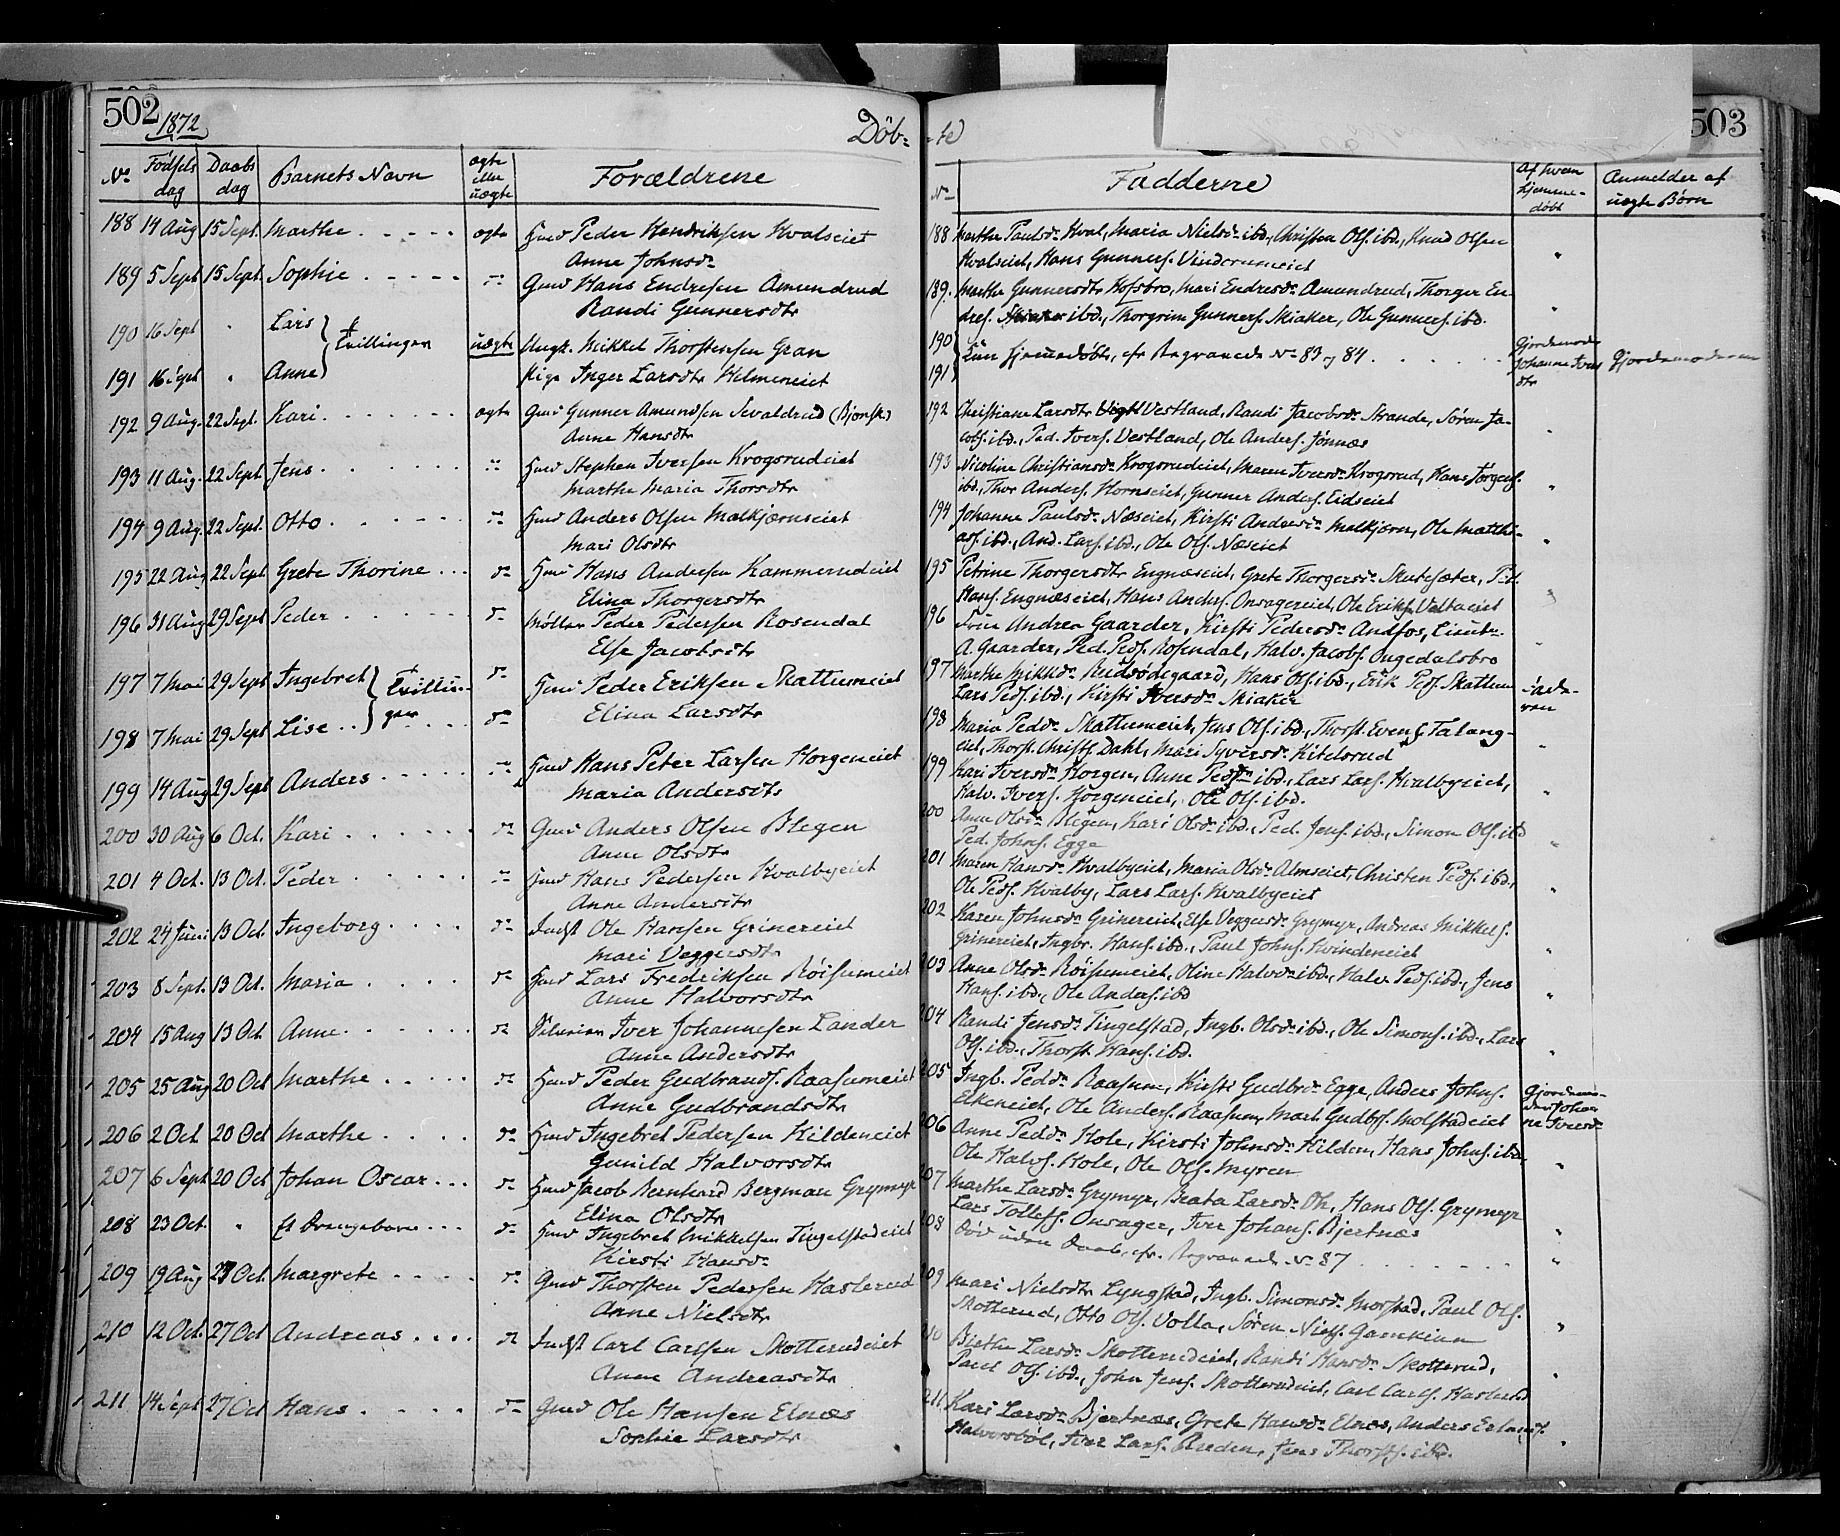 502
1872
Döb-
No
Fødsels dag
Daabs dag
Barnets Navn
ægte eller uægte
Forældrene
188 14 Aug 15 Sept. Marthe ægte Huusd Peder Hendriksen Kvalseiet
Anne Johnsdr
189 5 Sept 15 Sept. Sophie Gmd Hans Endresen Amundrud
Randi Gunnersdtr
190 16 Sept " Lars } Tvillinger uægte Ungk. Mikkel Thorstensen Gran
191 16 Sept " Anne } Pige Inger Larsdtr Helmeneiet
192 9 Aug. 22 Sept. Kari ægte Gmd Gunner Amundsen Sevaldrud (Bjonsk.)
Anne Hansdtr
193 11 Aug. 22 Sept. Jens Hmd Stephen Iversen Krogsrudeiet
Marthe Maria Thorsdtr
194 9 Aug. 22 Sept. Otto Hmd Anders Olsen Molkjærnseiet
Mari Olsdtr
195 22 Aug 22 Sept Grete Thorine Hmd Hans Andersen Kammerudeiet
Elina Thorgersdtr
196 31 Aug 29 Sept Peder Møller Peder Pedersen Rosendal
Else Jacobsdtr
197 7 Mai 29 Sept Ingebret } Tvillin- Hmd Peder Eriksen Skattumeiet
198 7 Mai 29 Sept Lise } ger Elina Larsdtr
199 14 Aug 29 Sept Anders Hmd Hans Peter Larsen Horgeneiet
Maria Andersdtr
200 30 Aug 6 Oct. Kari Gmd Anders Olsen Blegen
Anne Olsdtr
201 4 Oct. 13 Oct. Peder Hmd Hans Pedersen Kvalbyeiet
Anne Andersdtr
202 24 Juni 13 Oct Ingeborg Indst Ole Hansen Grinereiet
Mari Veggersdtr
203 8 Sept. 13 Oct. Maria Hmd Lars Fredriksen Röisumeiet
Anne Halvorsdtr
204 15 Aug 13 Oct Anne Iver Johannesen Lander
Anne Andersdtr
205 25 Aug 20 Oct Marthe Hmd Peder Gudbrands. Raasumeiet
Anne Gudbrandsdtr
206 2 Oct 20 Oct Marthe Hmd Ingebret Pedersen Hildeneiet
Gunild Halvorsdtr
207 6 Sept 20 Oct Johan Oscar Hmd Jacob Bernhard Bergman Grymyr
Elina Olsdtr
208 23 Oct. " Et Drengebarn Hmd Ingebret Mikkelsen Tingelstadeiet
Kirsti Hansdr
209 19 Aug 27 Oct. Margrete Gmd Thorsten Pedersen Haslerud
Anne Nielsdtr
210 12 Oct. 27 Oct Andreas Indst Carl Carlsen Skotterudeiet
Anne Andreasdtr
211 14 Sept 27 Oct Hans Gmd Ole Hansen Elnæs
Sophie Larsdtr
503
-te
No
Fadderne
Af hvem hjemme-døbt
Anmelder af uægte Børn
188 Marthe Paulsdr Kval, Maria Nielsdr ibd., Christen Ols. ibd., Knud Olsen
Kvalseiet, Hans Gunners. Vinderumeiet
189. Marthe Gunnersdtr Hofsbro, Mari Endresdr Amundrud, Thorger En-
dres. ibd., Thorgrim Gunners. Skiaker, Ole Gunners. ibd.
190 } Kun hjemmedøbt, cfr Begravede No 83 og 84 Gjordemoder
191 } Johanne Ivers dtr Gjordemoderen
192 Christiane Larsdtr Vestland, Randi Jacobsdr Strande, Søren Ja-
cobs. ibd., Ped. Ivers. Vestland, Ole Anders. Jönnæs
193 Nicoline Christiansdr Krogsrudeiet, Maren Iversdr Krogsrud, Hans Jørgens.
ibd., Thor Anders. Hornseiet, Gunner Anders. Eidseiet
194 Johanne Paulsdr Næseiet, Kirsti Andersdr Molkjærn, Ole Matthi-
as. ibd., And. Lars. ibd., Ole Ols. Næseiet
195 Petrine Thorgersdtr Engnæseiet, Grete Thorgersdr Skutesæter, Pet.
Hans. Engnæseiet, Hans Anders. Onsagereiet, Ole Eriks.
196 Frue Andrea Gaarder, Kirsti Pedersdr Andfos, Lieutn.
A. Gaarder, Ped. Peds. Rosendal, Halv. Jacobs. Ongedalsbro
197 Marthe Mikkdr Rudsødegaard, Hans Ols. ibd., Erik Peds. Skattum
Lars Peds. ibd., Kirsti Iversdr Skiaker
198 Maria Peddr Skattumeiet, Jens Ols. ibd., Thorst. Evens. Falang-
eiet, Thorst. Christs. Dahl, Mari Syversdr Kitelsrud
199 Kari Iversdr Horgen, Anne Pedsdr ibd., Lars Lars. Hvalbyeiet,
Halv. Ivers. Horgeneiet, Ole Ols. ibd.
200 Anne Olsdr Blegen, Kari Olsdr ibd., Ped. Jens. ibd., Simon Ols. ibd
Ped. Johns. Egge
201 Maren Hansdr Hvalbyeiet, Maria Olsdr Almseiet, Christen Peds. ibd.,
Ole Peds. Hvalby, Lars Lars. Kvalbyeiet
202 Karen Johnsdr Grinereiet, Else Veggersdr Grymyr, Andreas Mikkels.
Grinereiet, Ingbr. Hans. ibd., Paul Johns. Kvindeneiet
203 Anne Olsdr Röisumeiet, Oline Halvdr ibd., Halv. Peds. ibd., Jens
Hans. ibd., Ole Anders. ibd
204 Randi Jensdr Tingelstad, Ingb. Olsdr ibd., Ole Simons. ibd., Lars
Ols. ibd., Thorst. Hans. ibd.
205 Ingb. Peddr Raasum, Kirsti Gudbrdr Egge, Anders Johns. Gjordemo-
Ekeneiet, Ole Anders. Raasum, Mart. Gudbs. Molstadeiet
206 Anne Peddr Hole, Kirsti Johnsdr Hilden, Hans Johns. ibd
Ole Halvs. Hole, Ole Ols. Myren
207 Marthe Larsdr Grymyr, Beata Larsdr Oh, Hans Ols. Grymyr
Lars Tollefs. Onsager, Iver Johans. Bjertnæs
208 Død uden Daab, cfr. Begravede No 87
209 Mari Nielsdtr Lyngstad, Ingb. Simonsdr Morstad, Paul Ols.
Skotterud, Otto Ols. Volla, Søren Niels. Gamkinn
210 Birthe Larsdr Skotterudeiet, Randi Hansdr Skotterud,
Paul Ols. ibd., John Jens. Skotterudeiet, Carl Carls. Haslerud
211. Kari Larsdr Bjertnæs, Grete Hansdr Elnæs, Anders Erlands.
Halvorsböl, Iver Lars. Ruden, Jens Thorsts. ibd.